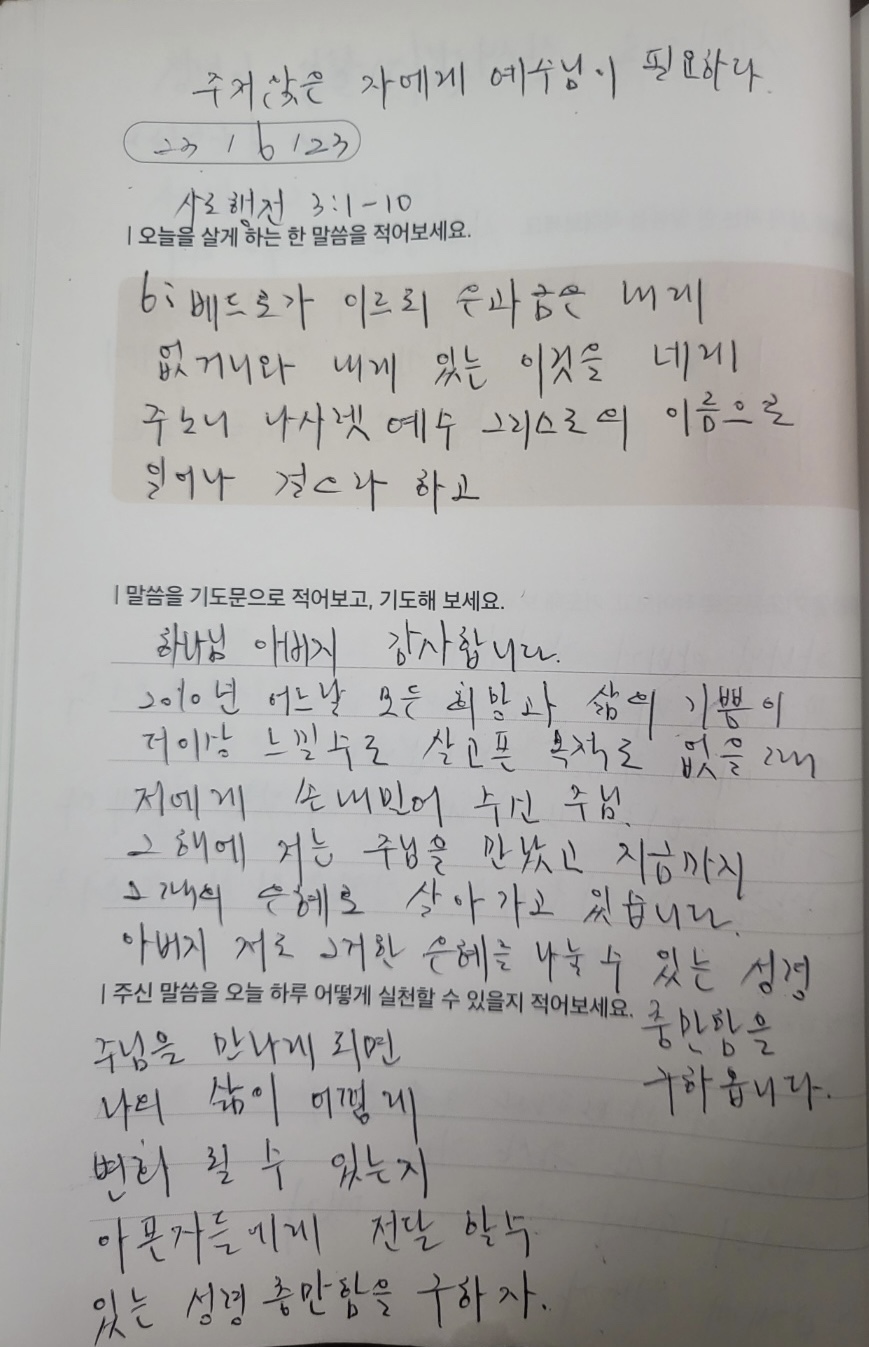 주저앉은 자에게 예수님이 필요하다.
23 / 6 / 23
사도행전 3:1-10
| 오늘을 살게 하는 한 말씀을 적어보세요.
6: 베드로가 이르되 은과 금은 내게
없거니와 내게 있는 이것을 네게
주노니 나사렛 예수 그리스도의 이름으로
일어나 걸으라 하고
| 말씀을 기도문으로 적어보고, 기도해 보세요.
하나님 아버지 감사합니다.
2010년 어느날 모든 희망과 삶의 기쁨이
더이상 느낄수도 살고픈 목적도 없을 때
저에게 손 내밀어 주신 주님.
그 해에 저는 주님을 만났고 지금까지
그때의 은혜로 살아가고 있습니다.
아버지 저도 그러한 은혜를 나눌 수 있는 성령
충만함을
구하옵니다.
| 주신 말씀을 오늘 하루 어떻게 실천할 수 있을지 적어보세요.
주님을 만나게 되면
나의 삶이 어떻게
변화 될 수 있는지
아픈자들에게 전달 할수
있는 성령 충만함을 구하자.